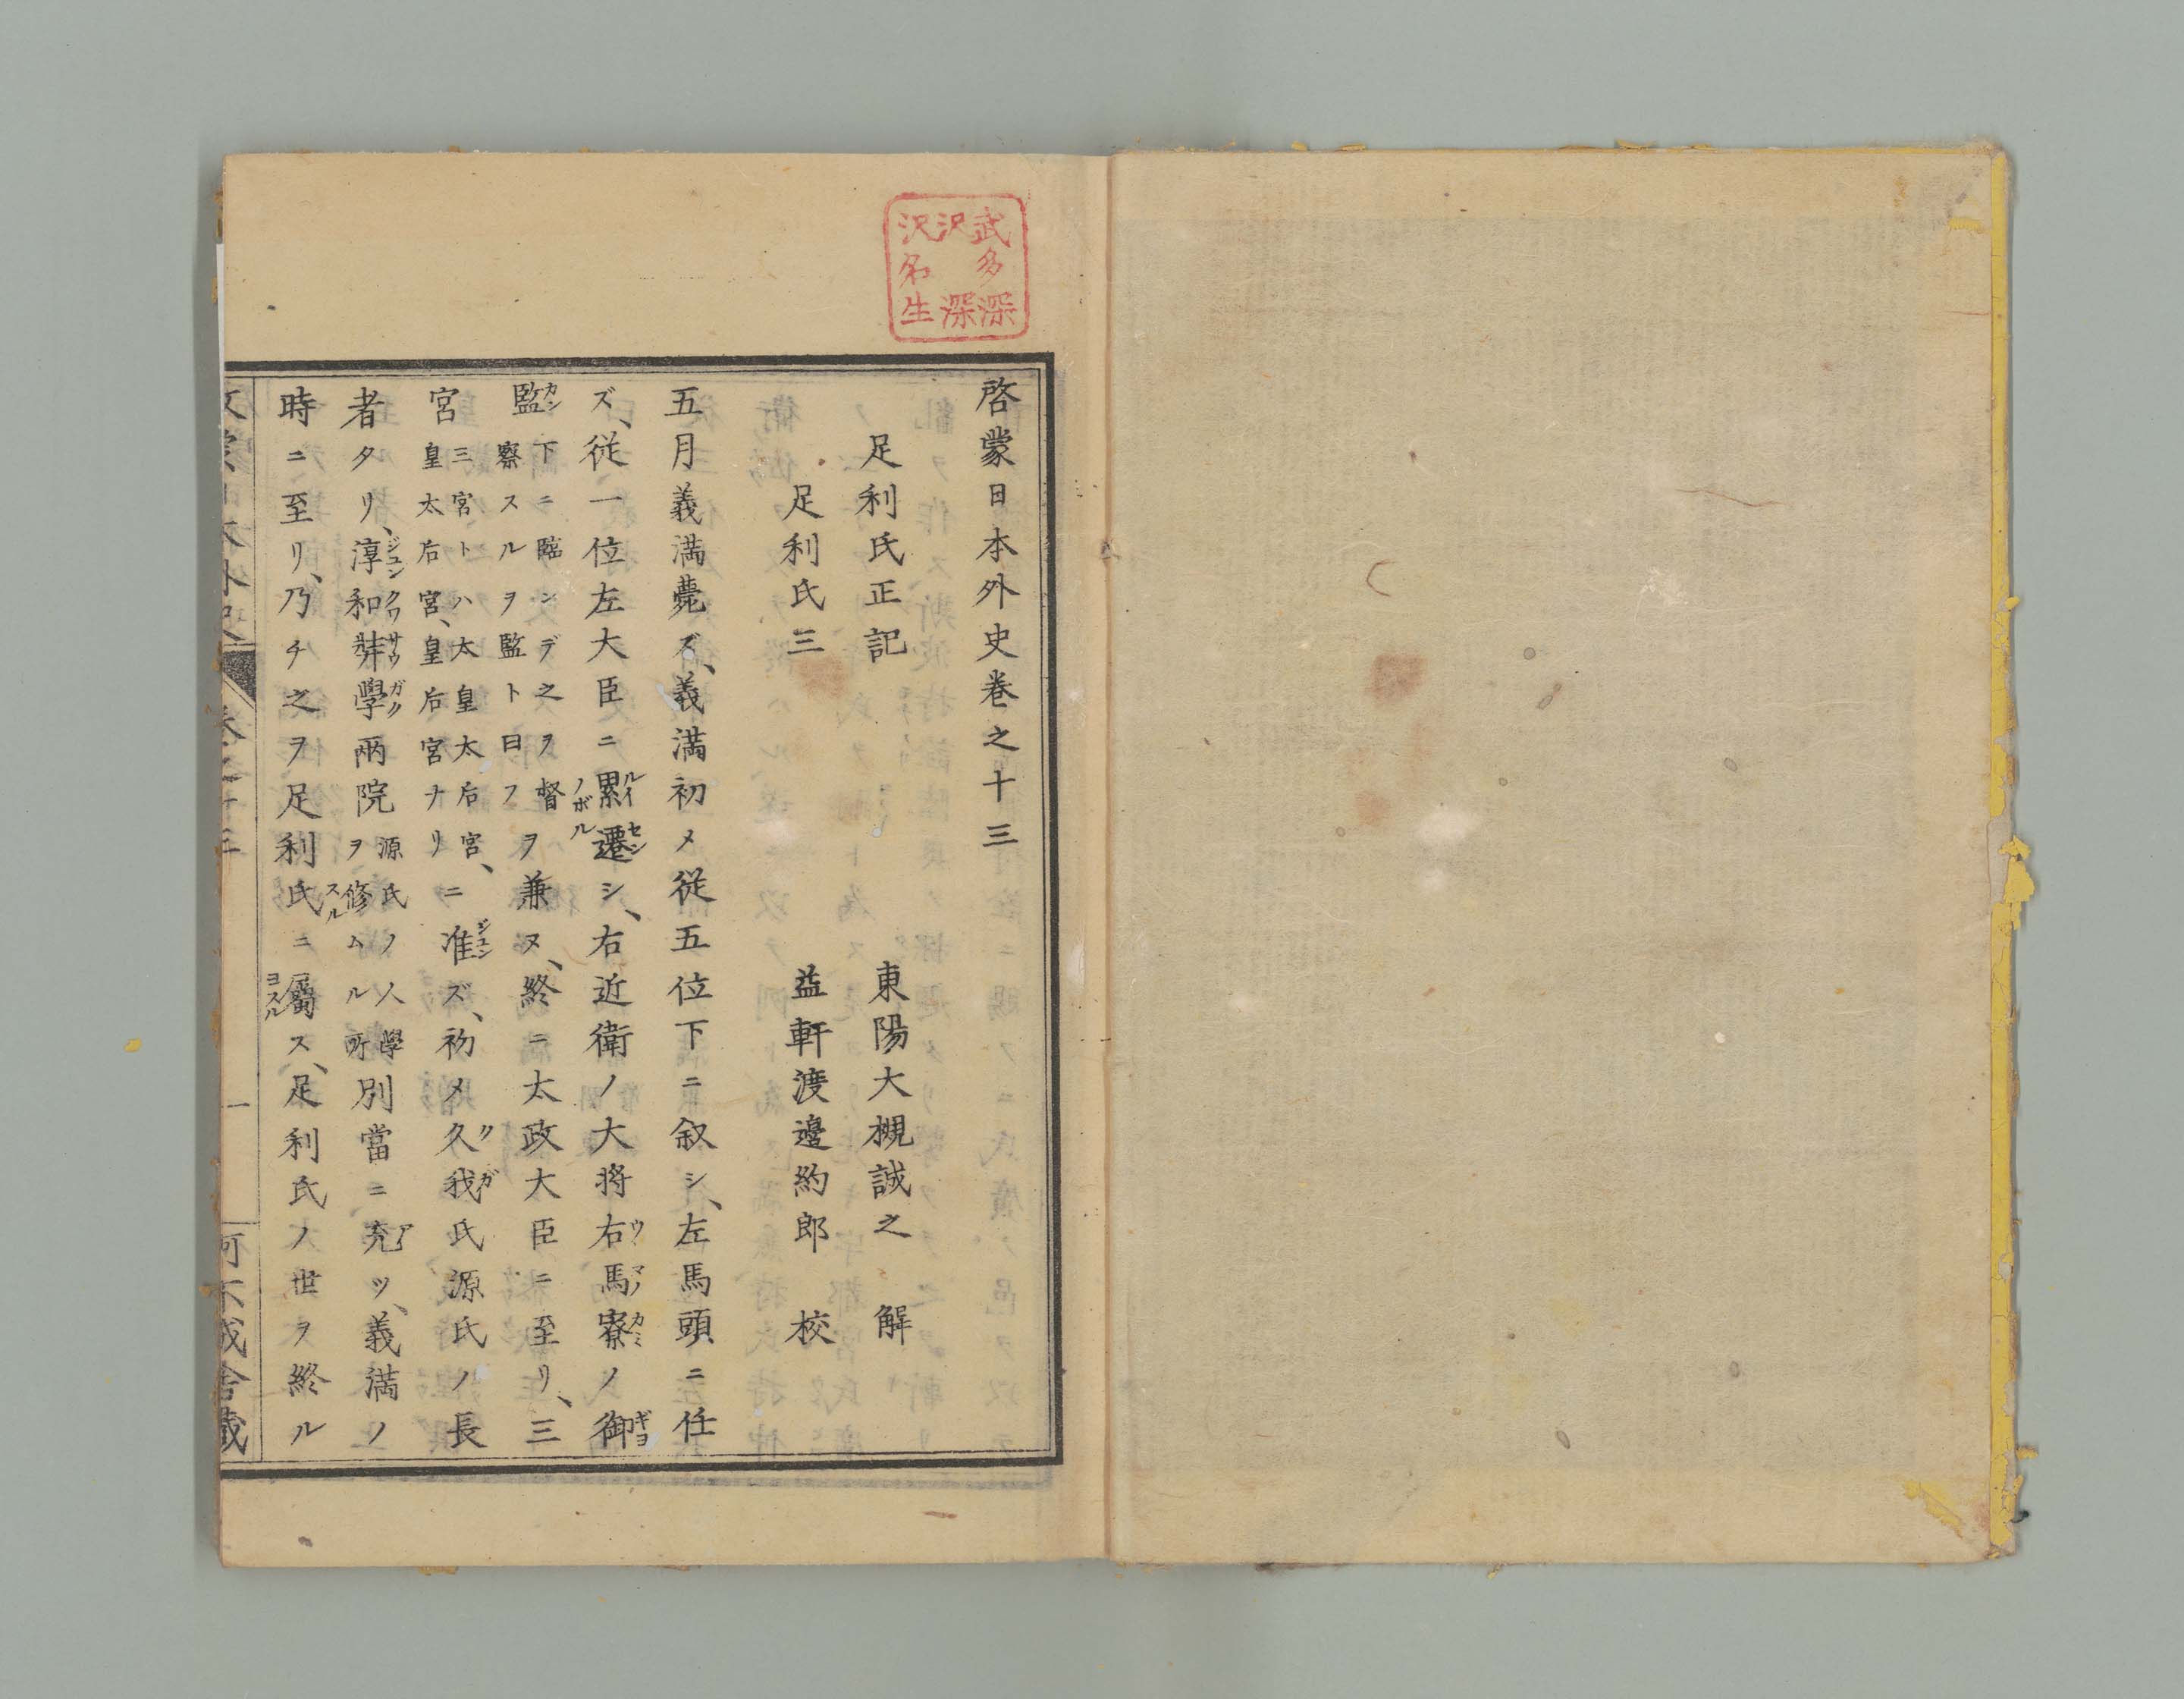 啓蒙日本外史卷之十三
足利氏正記　東陽大槻誠之　解
足利氏三　益軒渡邊約郎　校
五月義満薨ズ、義満初メ從五位下ニ叙シ、左馬頭ニ任
ズ、従一位左大臣ニ累遷シ、右近衛ノ大将右馬寮ノ御
監下ニ臨ンデ之ヲ督察スルヲ監ト曰フヲ兼ヌ、終ニ太政大臣ニ至リ、三
宮三宮トハ太皇太后宮、皇太后宮、皇后宮ナリニ准ズ、初メ久我氏源氏ノ長
者タリ、淳和弉學兩院源氏ノ人學ヲ修ムル所別當ニ充ツ、義満ノ
時ニ至リ、乃チ之ヲ足利氏ニ屬ス、足利氏ノ世ヲ終ル
武多深
沢深
沢名生